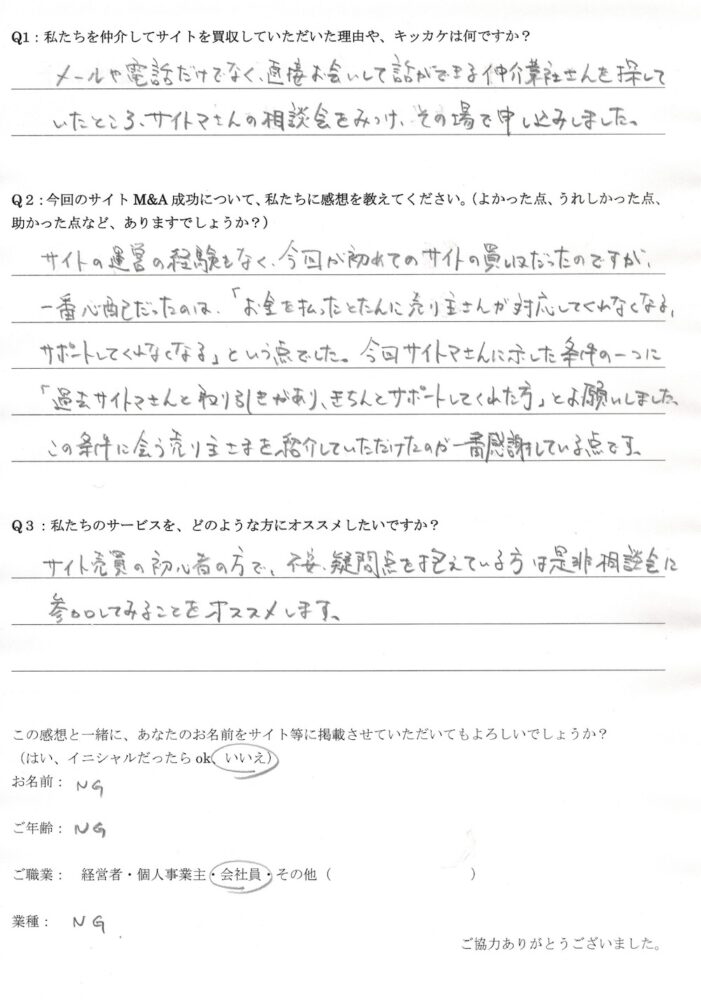 Q1：私たちを仲介してサイトを買収していただいた理由や、キッカケは何ですか？
メールや電話だけでなく、直接お会いして話ができる仲介業社さんを探して
いたところ、サイトマさんの相談会をみつけ、その場で申し込みしました。
Q2：今回のサイト M&A 成功について、私たちに感想を教えてください。（よかった点、うれしかった点、
助かった点など、ありますでしょうか？）
サイトの運営の経験もなく、今回が初めてのサイトの買いだったのですが、
一番心配だったのは、「お金を払ったとたんに売り主さんが対応してくれなくなる、
サポートしてくれなくなる」という点でした。今回サイトマさんに示した条件の一つに
「過去サイトマさんと取り引きがあり、きちんとサポートしてくれた方」とお願いしました。
この条件に会う売り主さまを紹介していただけたのが一番感謝している点です。
Q3：私たちのサービスを、どのような方にオススメしたいですか？
サイト売買の初心者の方で、不安、疑問点を抱えている方は是非相談会に
参加してみることをオススメします。
この感想と一緒に、あなたのお名前をサイト等に掲載させていただいてもよろしいでしょうか？
（はい、イニシャルだったら ok、いいえ）
お名前： NG
ご年齢： NG
ご職業： 経営者・個人事業主・会社員・その他（ ）
業種： NG
ご協力ありがとうございました。